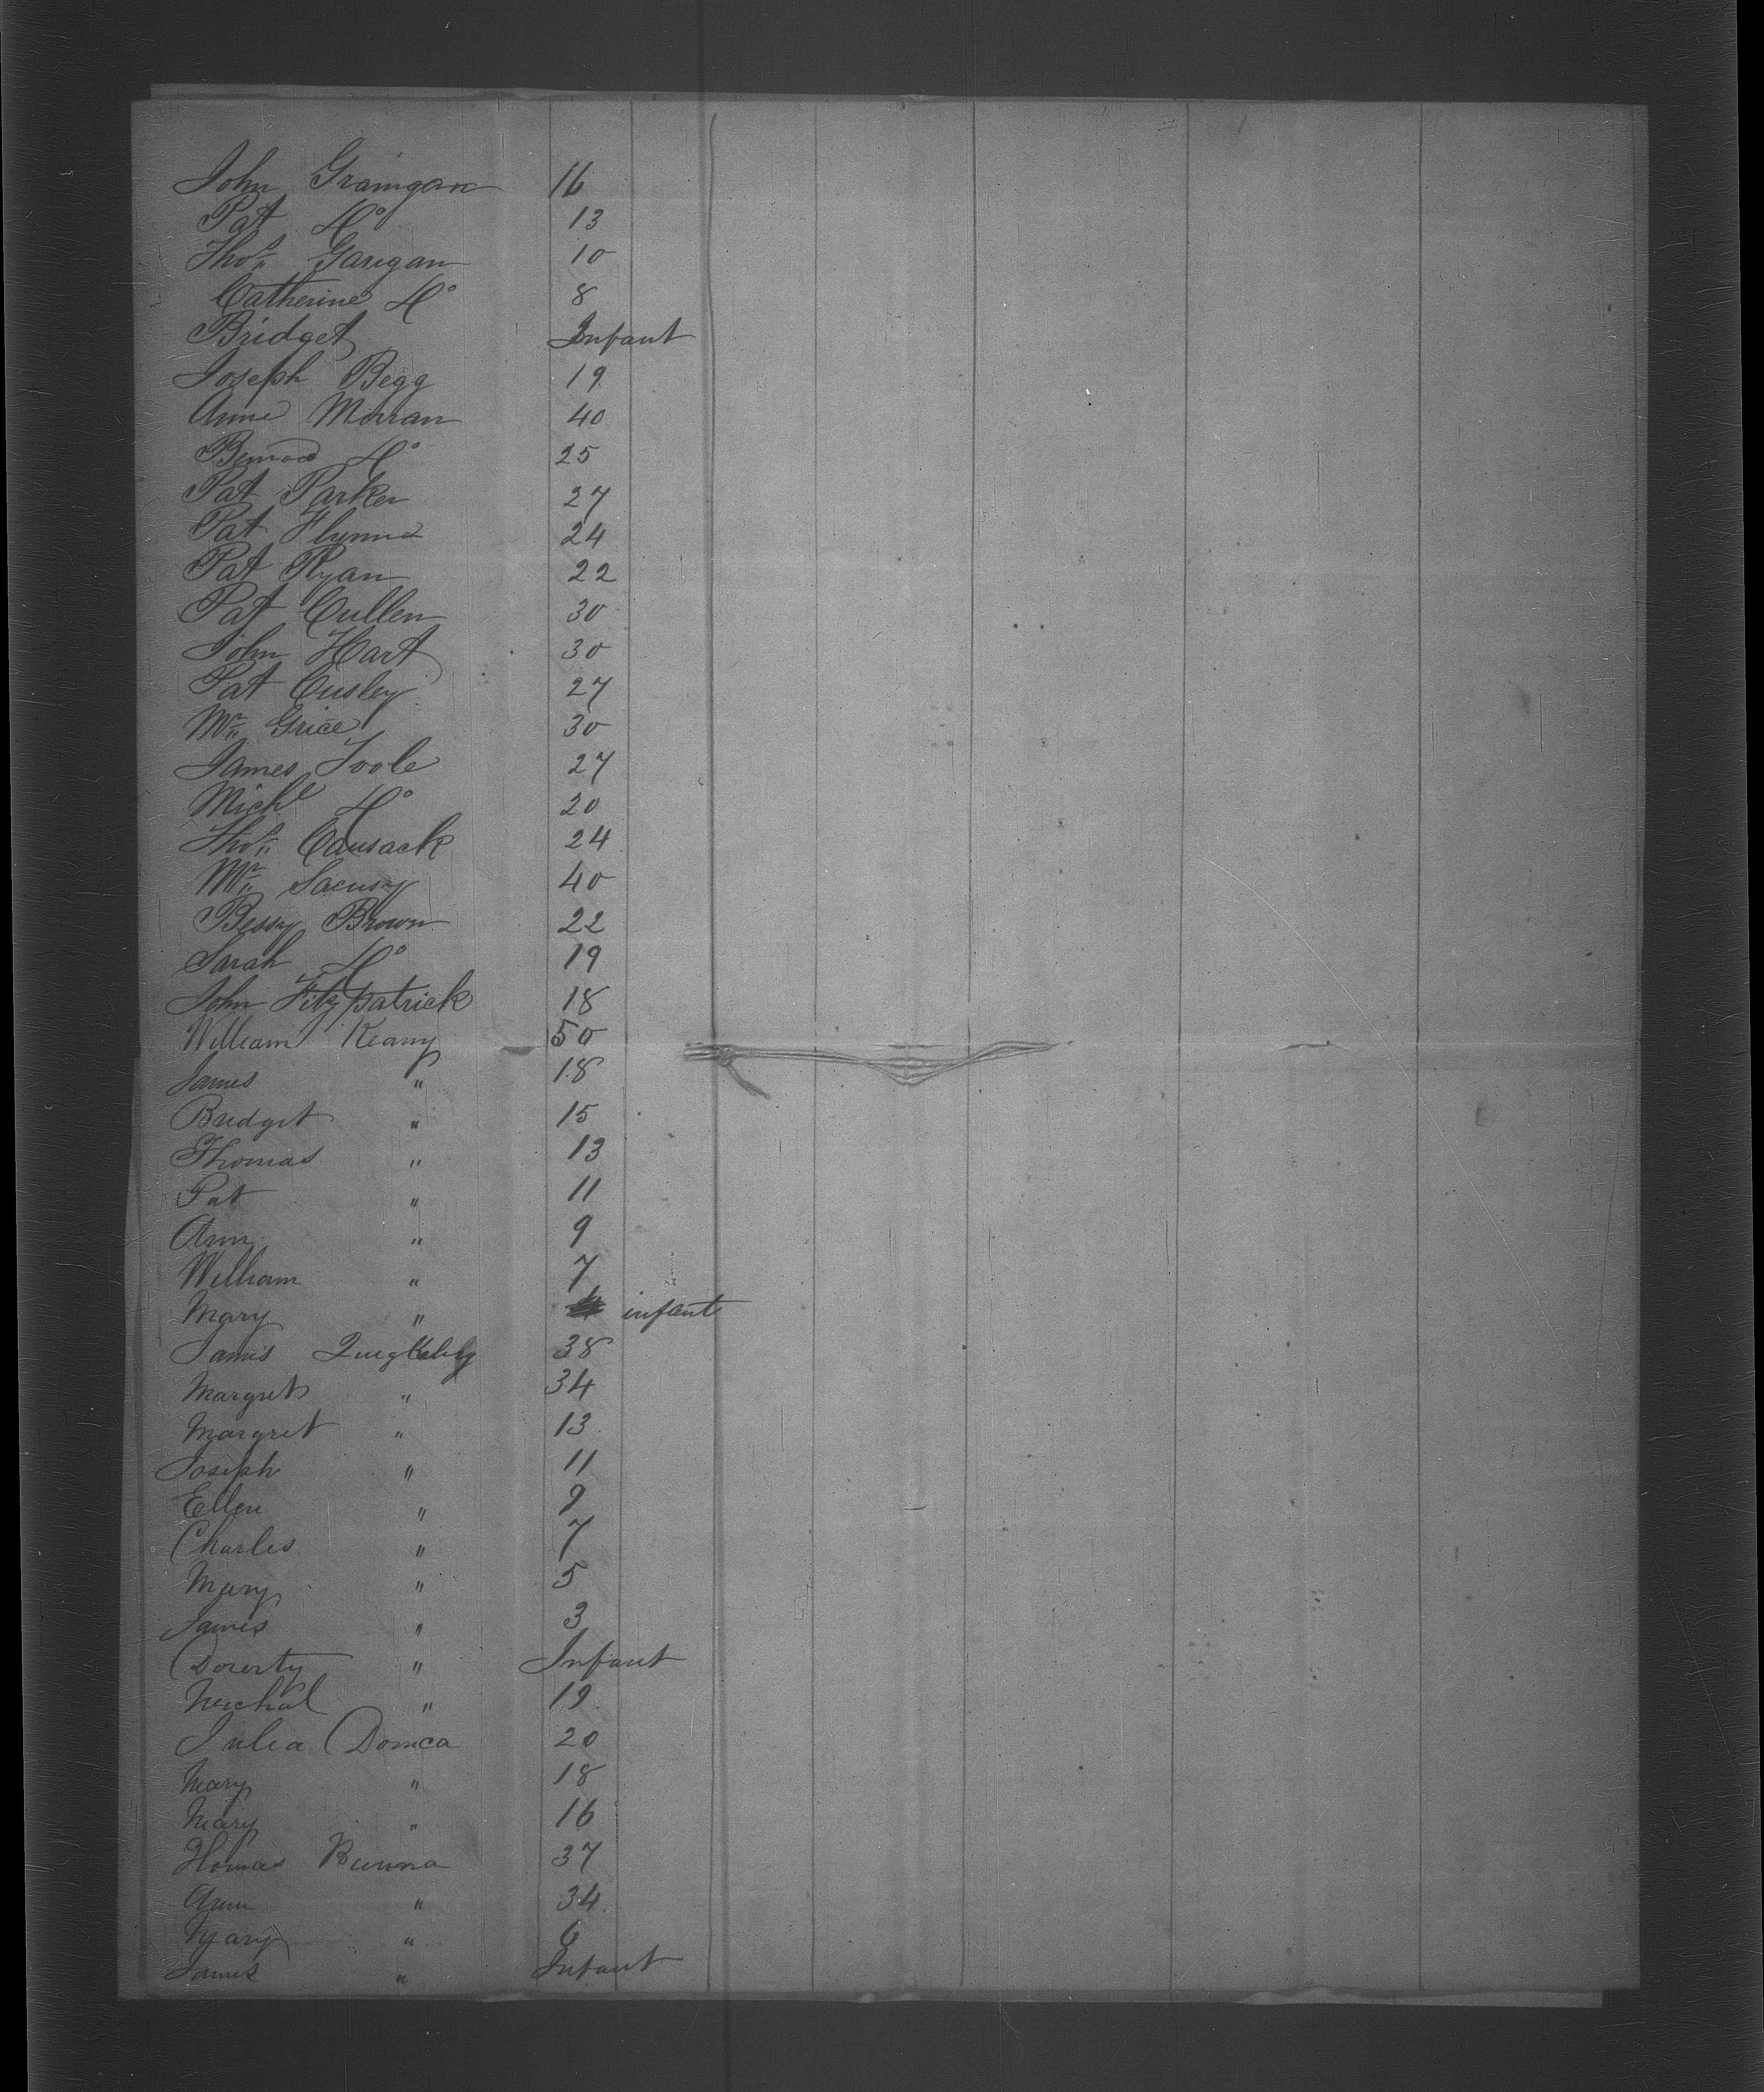 John Graingan 16
Pat Do 13
Thos Garigan 10
Catherine Do 8
Bridget Infant
Joseph Begg 19
Anne Morran 40
Do 25
Pat Parker 27
Pat Flynn 24
Pat Ryan 22
Pat Cullen 30
John Hart 30
Pat Cusley 27
Mr Grice 30
James Toole 27
Michl Do 20
Thos Causack 24
Mr 40
Bessy Brown 22
Sarah Do 19
John Fitzpatrick 18
William Keany 50
James " 18
Bridget " 15
Thomas " 13
Pat " 11
Ann " 9
William " 7
Mary " infant
James 38
Margret " 34
Margret " 13
Joseph " 11
Ellen " 9
Charles " 7
Mary " 5
James " 3
Dorerty " Infant
Michal " 19
Julia Domca 20
Mary " 18
Mary " 16
Thomas 37
Ann " 34
Mary " 6
James " Infant